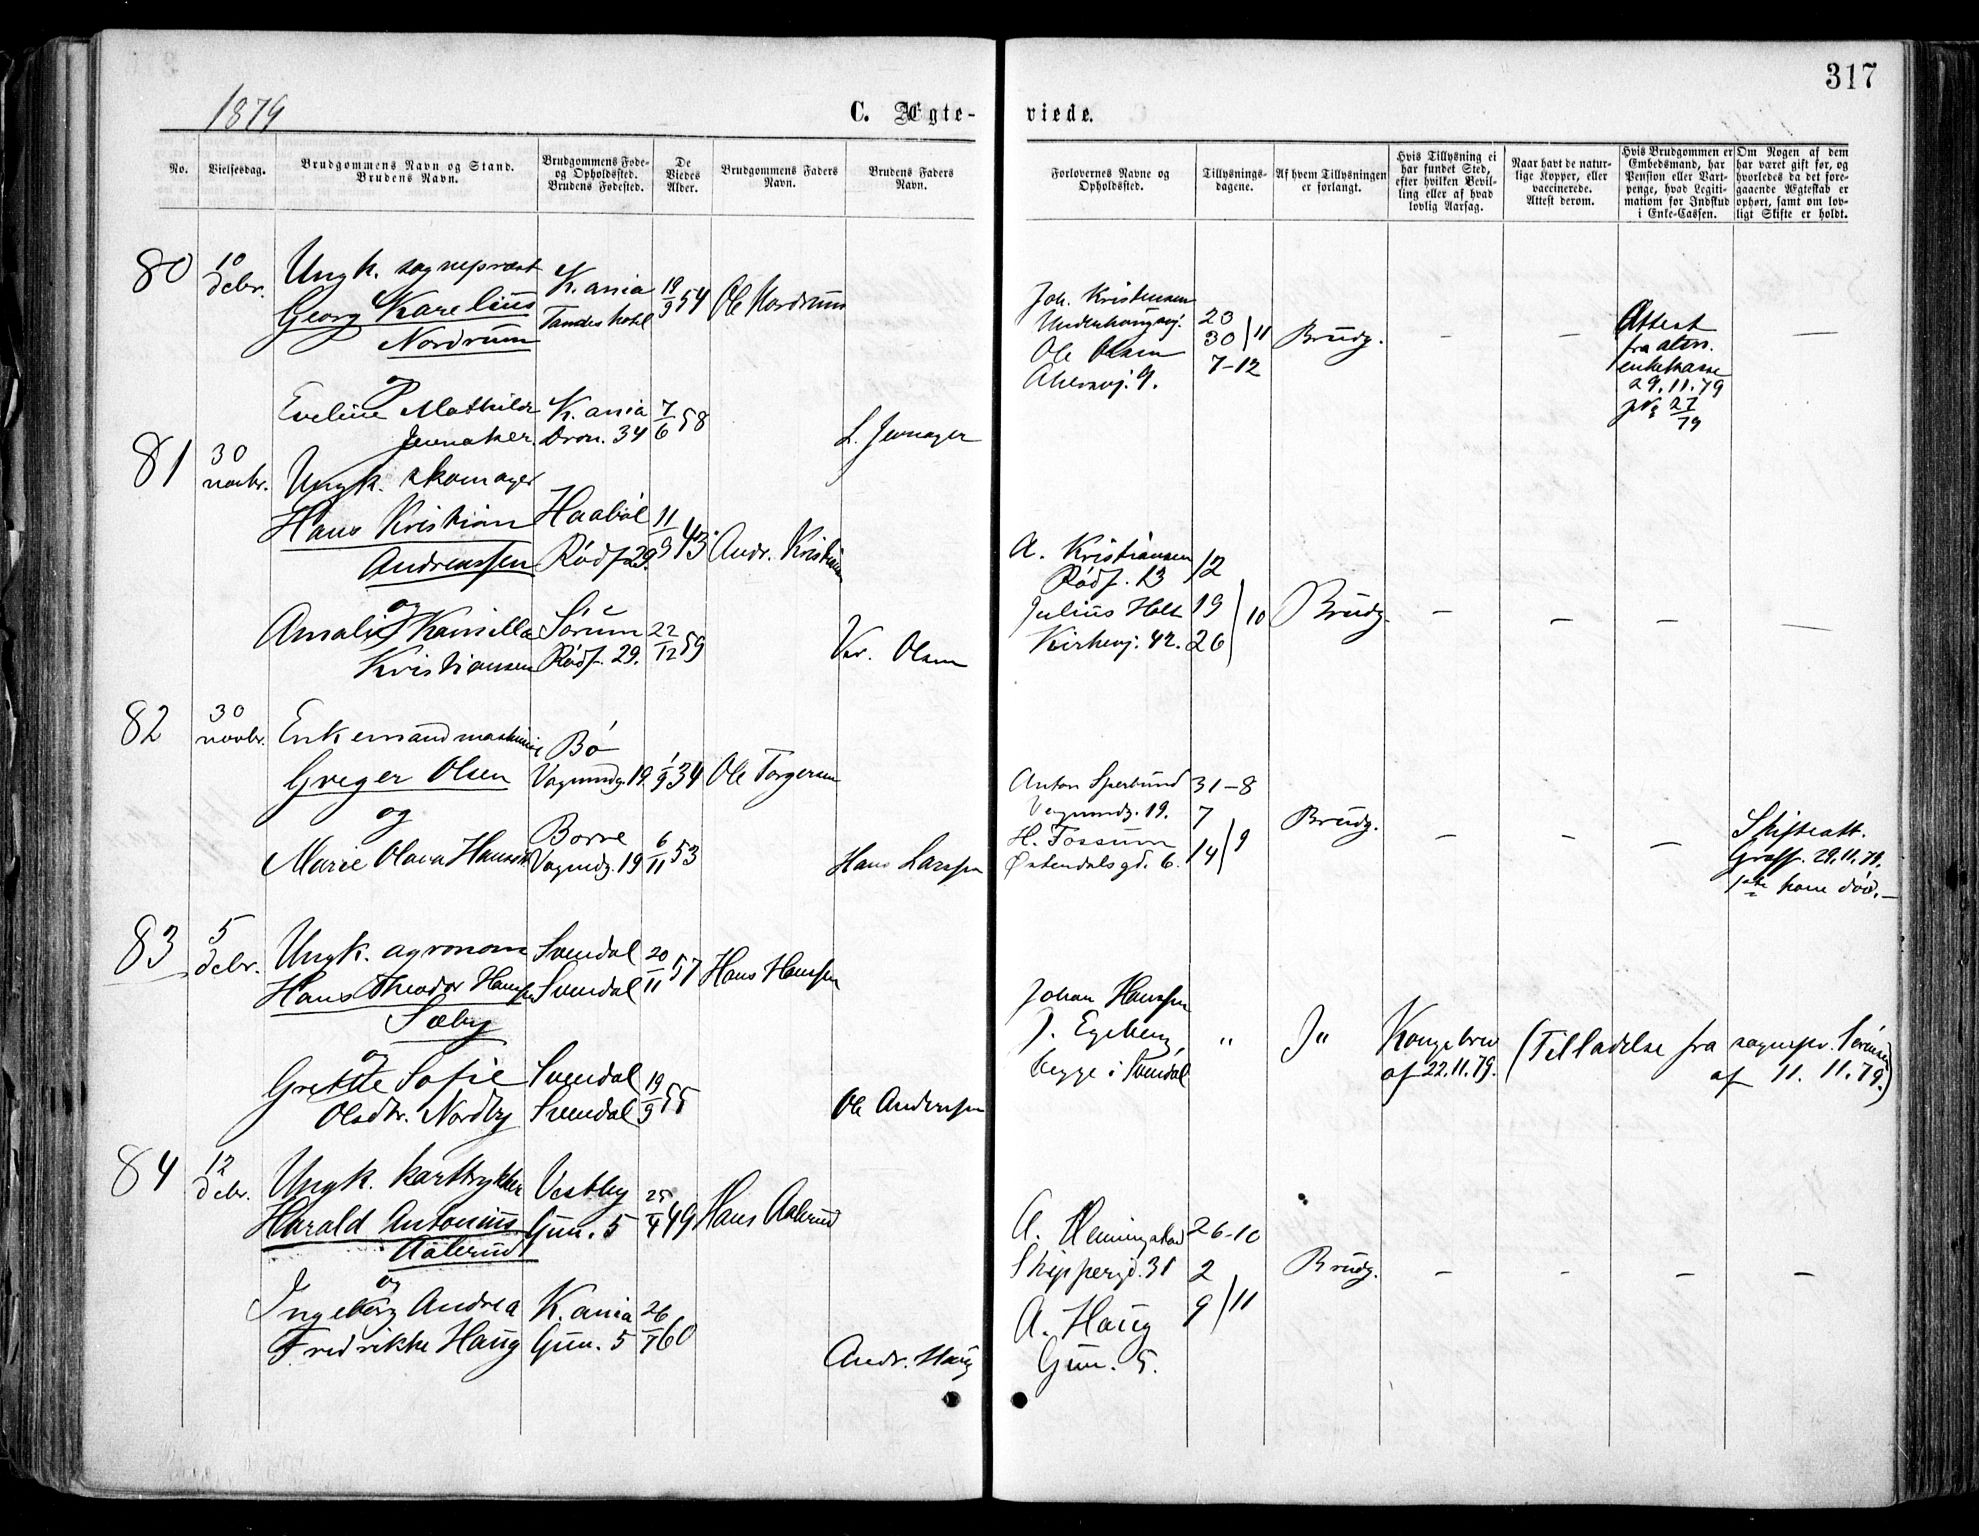 317
1879
C. Ægte-
viede.
No.
Vielsesdag.
Brudgommens Navn og Stand.
Brudens Navn.
Brudgommens Føde-
og Opholdssted.
Brudens Fødested.
De
Viedes
Alder.
Brudgommens Faders
Navn.
Brudens Faders
Navn.
Forlovernes Navne og
Opholdssted.
Tillysnings-
dagene.
Af hvem Tillysningen
er forlangt.
Hvis Tillysning ei
har fundet Sted,
efter hvilken Bevil-
ling eller af hvad
lovlig Aarsag.
Naar havt de natur-
lige Kopper, eller
vaccinerede.
Attest derom.
Hvis Brudgommen er
Embedsmand, har
Pension eller Vart-
penge, hvad Legiti-
mation for Indskud
i Enke-Cassen.
Om Nogen af dem
har været gift før, og
hvorledes da det fore-
gaaende Ægteskab er
ophørt, samt om lov-
ligt Skifte er holdt.
80
10
debr.
Ungk. sogneprest
Georg Karelius
Nordrum
og
Eveline Mathilde
Jevnaker.
K.ania
K.ania
Dron. 34
19/9 54
7/6 58
Ole Nordrum
L. Jevnager
Joh. Kristensen
Underhaugsvj.
Ole Olsen
Akersvj. 9.
23
30 / 11
7-12
Brudg.
–
–
Attest
fra alm.
enkekasse
29.11.79
–
81
30
novbr.
Ungk. skomager
Hans Kristian
Andreassen
og
Amalie Kamilla
Kristiansen
Haabøl
Rødf. 29.
Sørum
Rødf. 29.
11/9 43
22/12 59
Andr. Kristiansen
Kr. Olsen
A. Kristiansen
Rødf. 13
Julius Holt
Kirkevj. 42.
12
19
26 / 10
Brudg.
–
–
–
–
82
30
novbr.
Enkemand maskinist
Greger Olsen
og
Marie Olava Hanssen
Bø
Vognmdg. 19
Borre
Vognmdg. 19
1/9 34
6/11 53
Ole Torgersen
Hans Larssen
Anton Sperbund
Vognmdg. 19.
H. Fossum
Østendalsgd. 6.
31-8
7
14 / 9
Brudg.
–
–
–
Skifteatt.
29.11.79.
1ste kone død.–
83
5
debr.
Ungk. agronom
Hans Theodor Hanssen
Sæby
og
Grethe Sofie
Olsdtr. Nordby
Svendal
Svendal
Svendal
Svendal
20/11 57
19/9 55
Hans Hanssen
Ole Anderssen
Johan Hanssen
J. Egeberg,
begge i Svendal
"
"
Kongebrev
af 22.11.79.
(Tilladelse fra sognepr. Sørensen
af 11.11.79.)
84
12
debr.
Ungk. karttrykker
Harald Antonius
Aalerud
og
Ingeborg Andrea
Fredrikke Haug
Vestby
Gun. 5
K.ania
Gun. 5
25/4 49
26/7 60
Hans Aalerud
Andr. Haug
A. Henningstad
Skippergd. 31
A. Haug
Gun. 5.
26-10
2
9 / 11
Brudg.
–
–
–
–